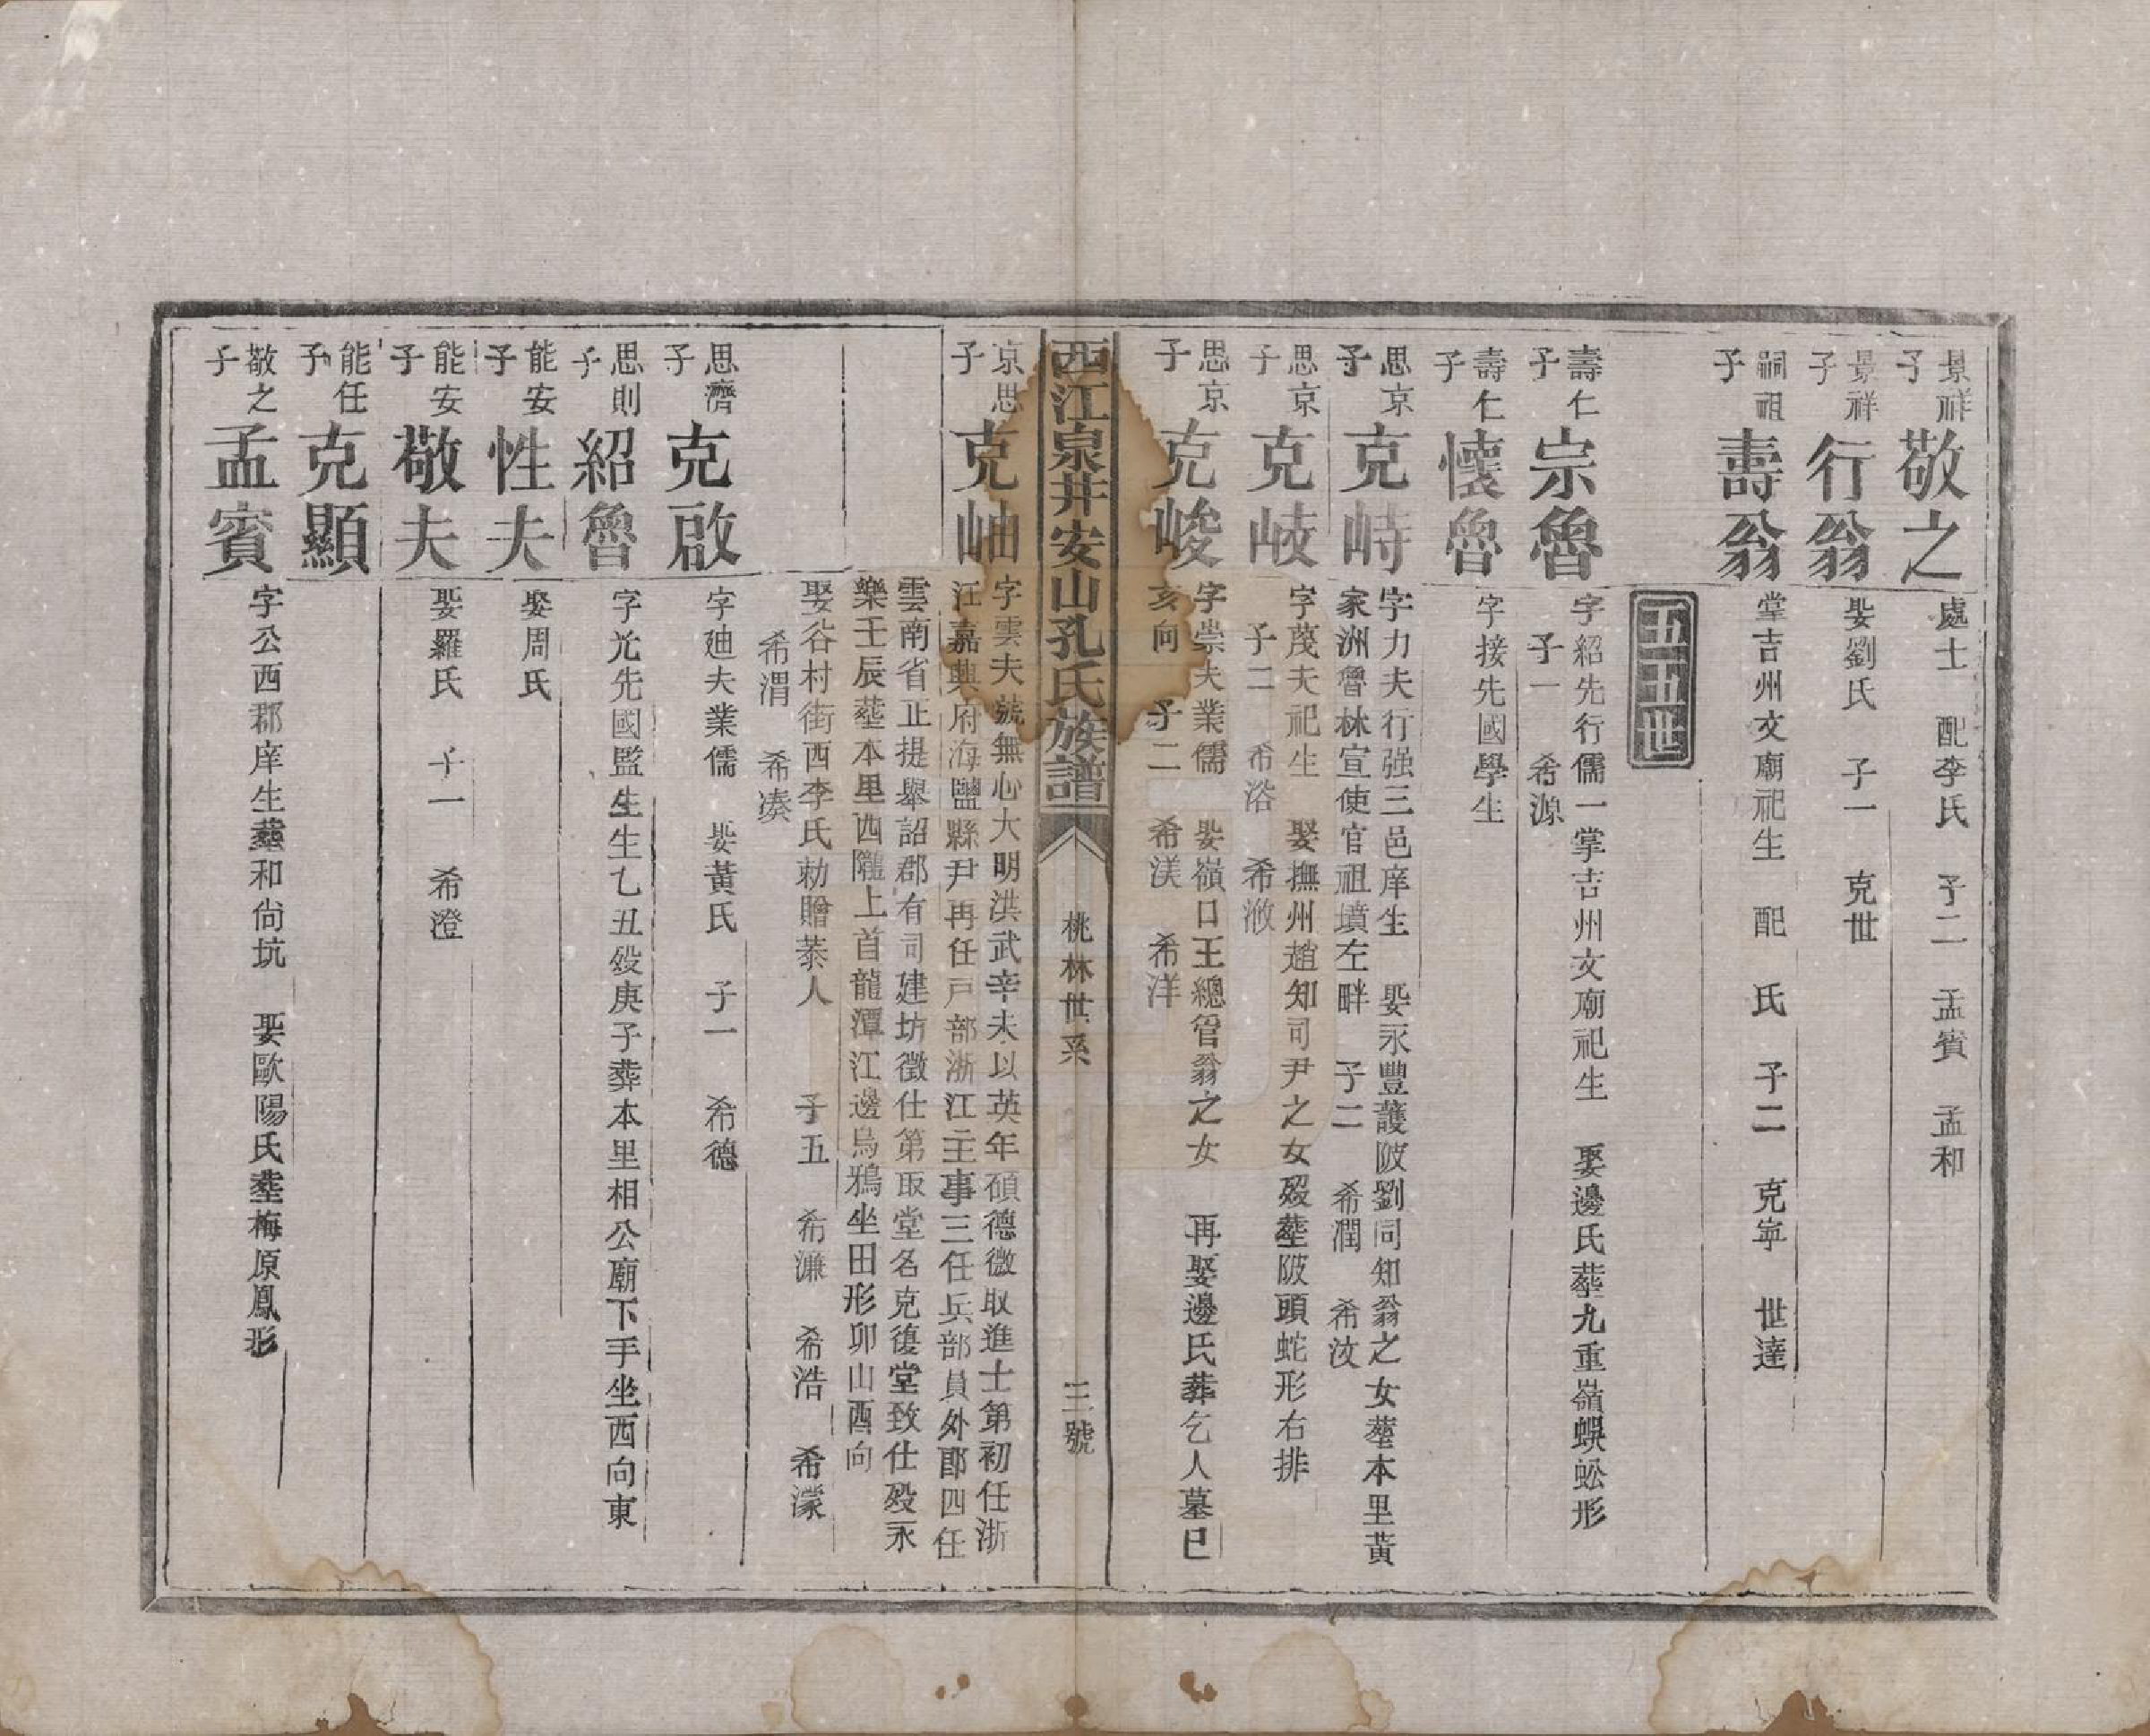 景祥
子
敬之
處士 配李氏 子二 孟賓 孟和
景祥
子
行翁
娶劉氏 子一 克世
嗣祖
子
壽翁
掌吉州文廟祀生 配 氏 子二 克寧 世達
五五世
壽仁
子
宗魯
字紹先行儒一掌吉州文廟祀生 娶邊氏葬九重嶺蜈蚣形
子一 希源
壽仁
子
懷魯
字接先國學生
思京
子
克峙
字力夫行强三邑庠生 娶永豐護陂劉同知翁之女塟本里黃
家洲魯林宣使官祖墳左畔 子二 希潤 希汶
思京
子
克岐
字茂夫祀生 娶撫州趙知司尹之女歿塟陂頭蛇形右排
子二 希浴 希滺
思京
子
克峻
字崇夫業儒 娶嶺口王總管翁之女 再娶邊氏葬乞人墓巳
亥向 子二 希渼 希洋
西江泉井安山孔氏族譜
桃林世系
三號
京思
子
克岫
字雲夫號無心大明洪武辛未以英年碩德徵取進士第初任浙
江嘉興府海鹽縣尹再任戸部浙江主事三任兵部員外郎四任
雲南省正提舉詔郡有司建坊徵仕第取堂名克復堂致仕殁永
樂壬辰塟本里西隴上首龍潭江邊烏鴉坐田形卯山酉向
娶谷村街西李氏勅贈恭人 子五 希濂 希浩 希濛
希渭 希湊
思濟
子
克啟
字廸夫業儒 娶黃氏 子一 希德
思則
子
紹魯
字光先國監生生乙丑殁庚子葬本里相公廟下手坐西向東
能安
子
性夫
娶周氏
能安
子
敬夫
娶羅氏 子一 希澄
能任
子
克顯
敬之
子
孟賓
字公西郡庠生塟和尙坑 娶歐陽氏塟梅原鳳形